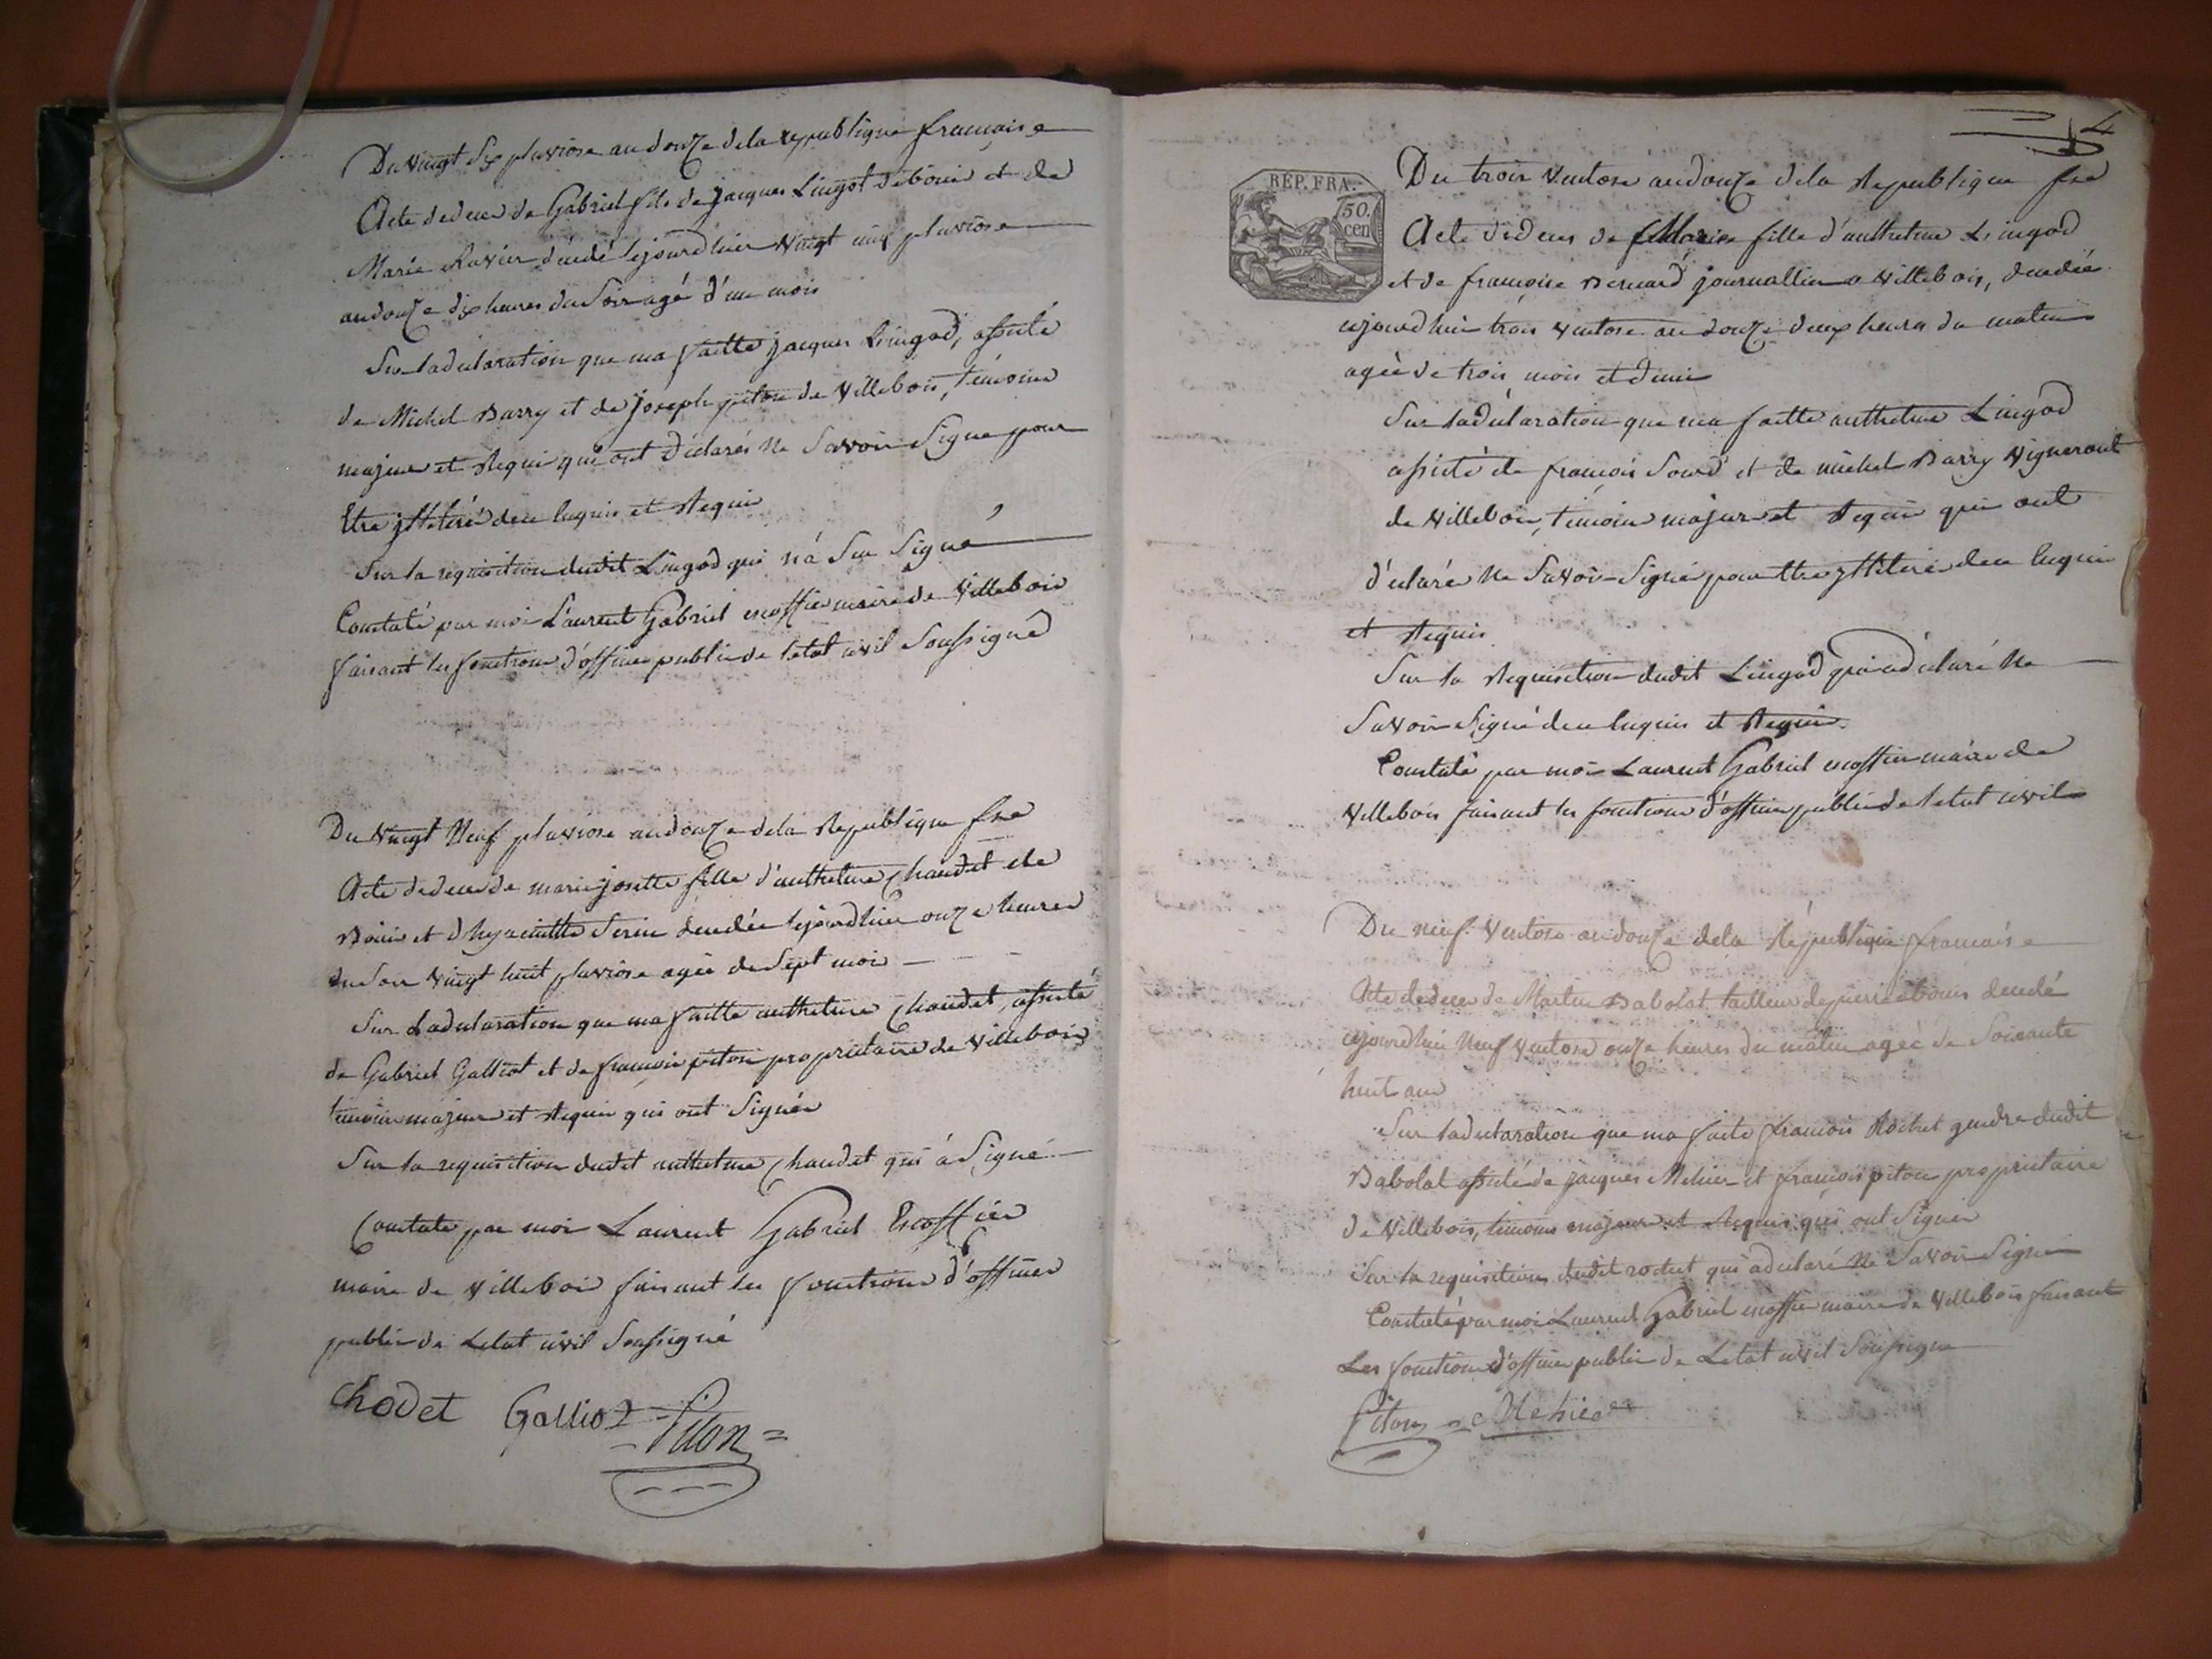 Du vingt six pluviose an douze dela republique francaise
Acte dedeces de Gabriel fils de jacques Lingot de bouis et de
Marie Ravier décédé lejourdhier vingt cinq pluviose
an douze dix heures du Soir agé d'un mois
Sur la declaration que ma faitte jacques Lingod, assisté
de Michel Barry et de joseph piton de Villebois, témoins
majeurs et Requis qui ont déclarés ne Savoir Signe pour
Etre illeteré de ce enquis et Requis
Sur la requisition dudit Lingod qui n'a Sçu Signé
Constaté par moi Laurent Gabriel escoffier maire de Villebois
faisant les fonctions d'officier public de letat civil Soussigné
Du vingt Neuf pluviose an douze dela Republique fse
Acte dedeces de marie josette fille d'anthelme Chaudet de
Bouis et d'hyacinthe Serin décédée lejourdhier onze heures
du Soir vingt huit pluviose agée de Sept mois
Sur Ladeclaration que ma faitte anthelme Chaudet, assisté
de Gabriel Galliot et de francois piton propriétaire de Villebois
temoins majeurs et Requis qui ont Signés
Sur la requisition dudit anthelme Chaudet qui à Signé
Constaté par moi Laurent Gabriel Escoffier
maire de Villebois faisant les fonctions d'officier
public de Letat civil Soussigné
Chodet Galliot Piton
4
REP. FRA.
50.
cen
Du trois Ventose an douze dela Republique fse
Acte dedeces de Marie fille d'anthelme Lingod
et de francoise Bernard journallier a Villebois, décédée
cejourdhui trois Ventose an douze deux heures du matin
agée de trois mois et demi
Sur ladéclaration que ma faitte anthelme Lingod
assisté de francois Sourd et de michel Barry Vigneront
de Villebois, témoins majeurs et Requis qui ont
d'éclaré ne Savoir Signé pour Etre illeteré de ce enquis
et Requis
Sur la Requisition dudit Lingod qui a déclaré Ne
Savoir Signé de ce enquis et Requis.
Constaté par moi Laurent Gabriel escoffier maire de
Villebois faisant les fonctions d'officier public de letat civil
Du neuf Ventose an douze dela République francaise
Acte dedeces de Martin Babolat tailleur de pierre a bouis décédé
cejourdhui Neuf Ventose onze heures du matin agée de Soixante
huit ans
Sur ladeclaration que ma faite francois Rochet gendre dudit
Babolat assisté de jacques Mehier et francois piton propriétaire
de Villebois, témoins majeurs et Requis qui ont Signer
Sur la requisition dudit rochet qui a declaré Ne Savoir Signé
Constaté par moi Laurent Gabriel escoffier maire de Villebois faisant
Les fonctions d'officier public de Letat civil Soussigne
Piton Mehier